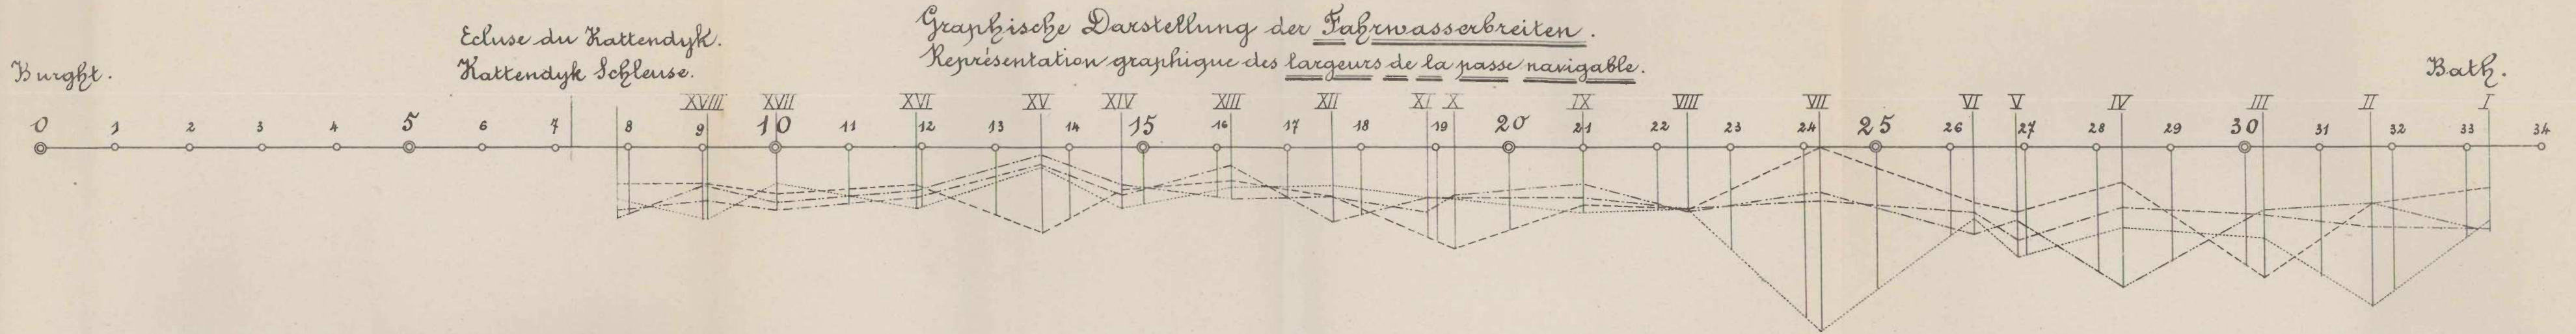 Graphische Darstellung der Fahrwasserbreiten.
Représentation graphique des largeurs de la passe navigable.
Ecluse du Kattendyk.
Kattendyk Schleuse.
Burght.
Bath.
XVIII XVII XVI XV XIV XIII XII XI X IX VIII VII VI V IV III II I
0 1 2 3 4 5 6 7 8 9 10 11 12 13 14 15 16 17 18 19 20 21 22 23 24 25 26 27 28 29 30 31 32 33 34